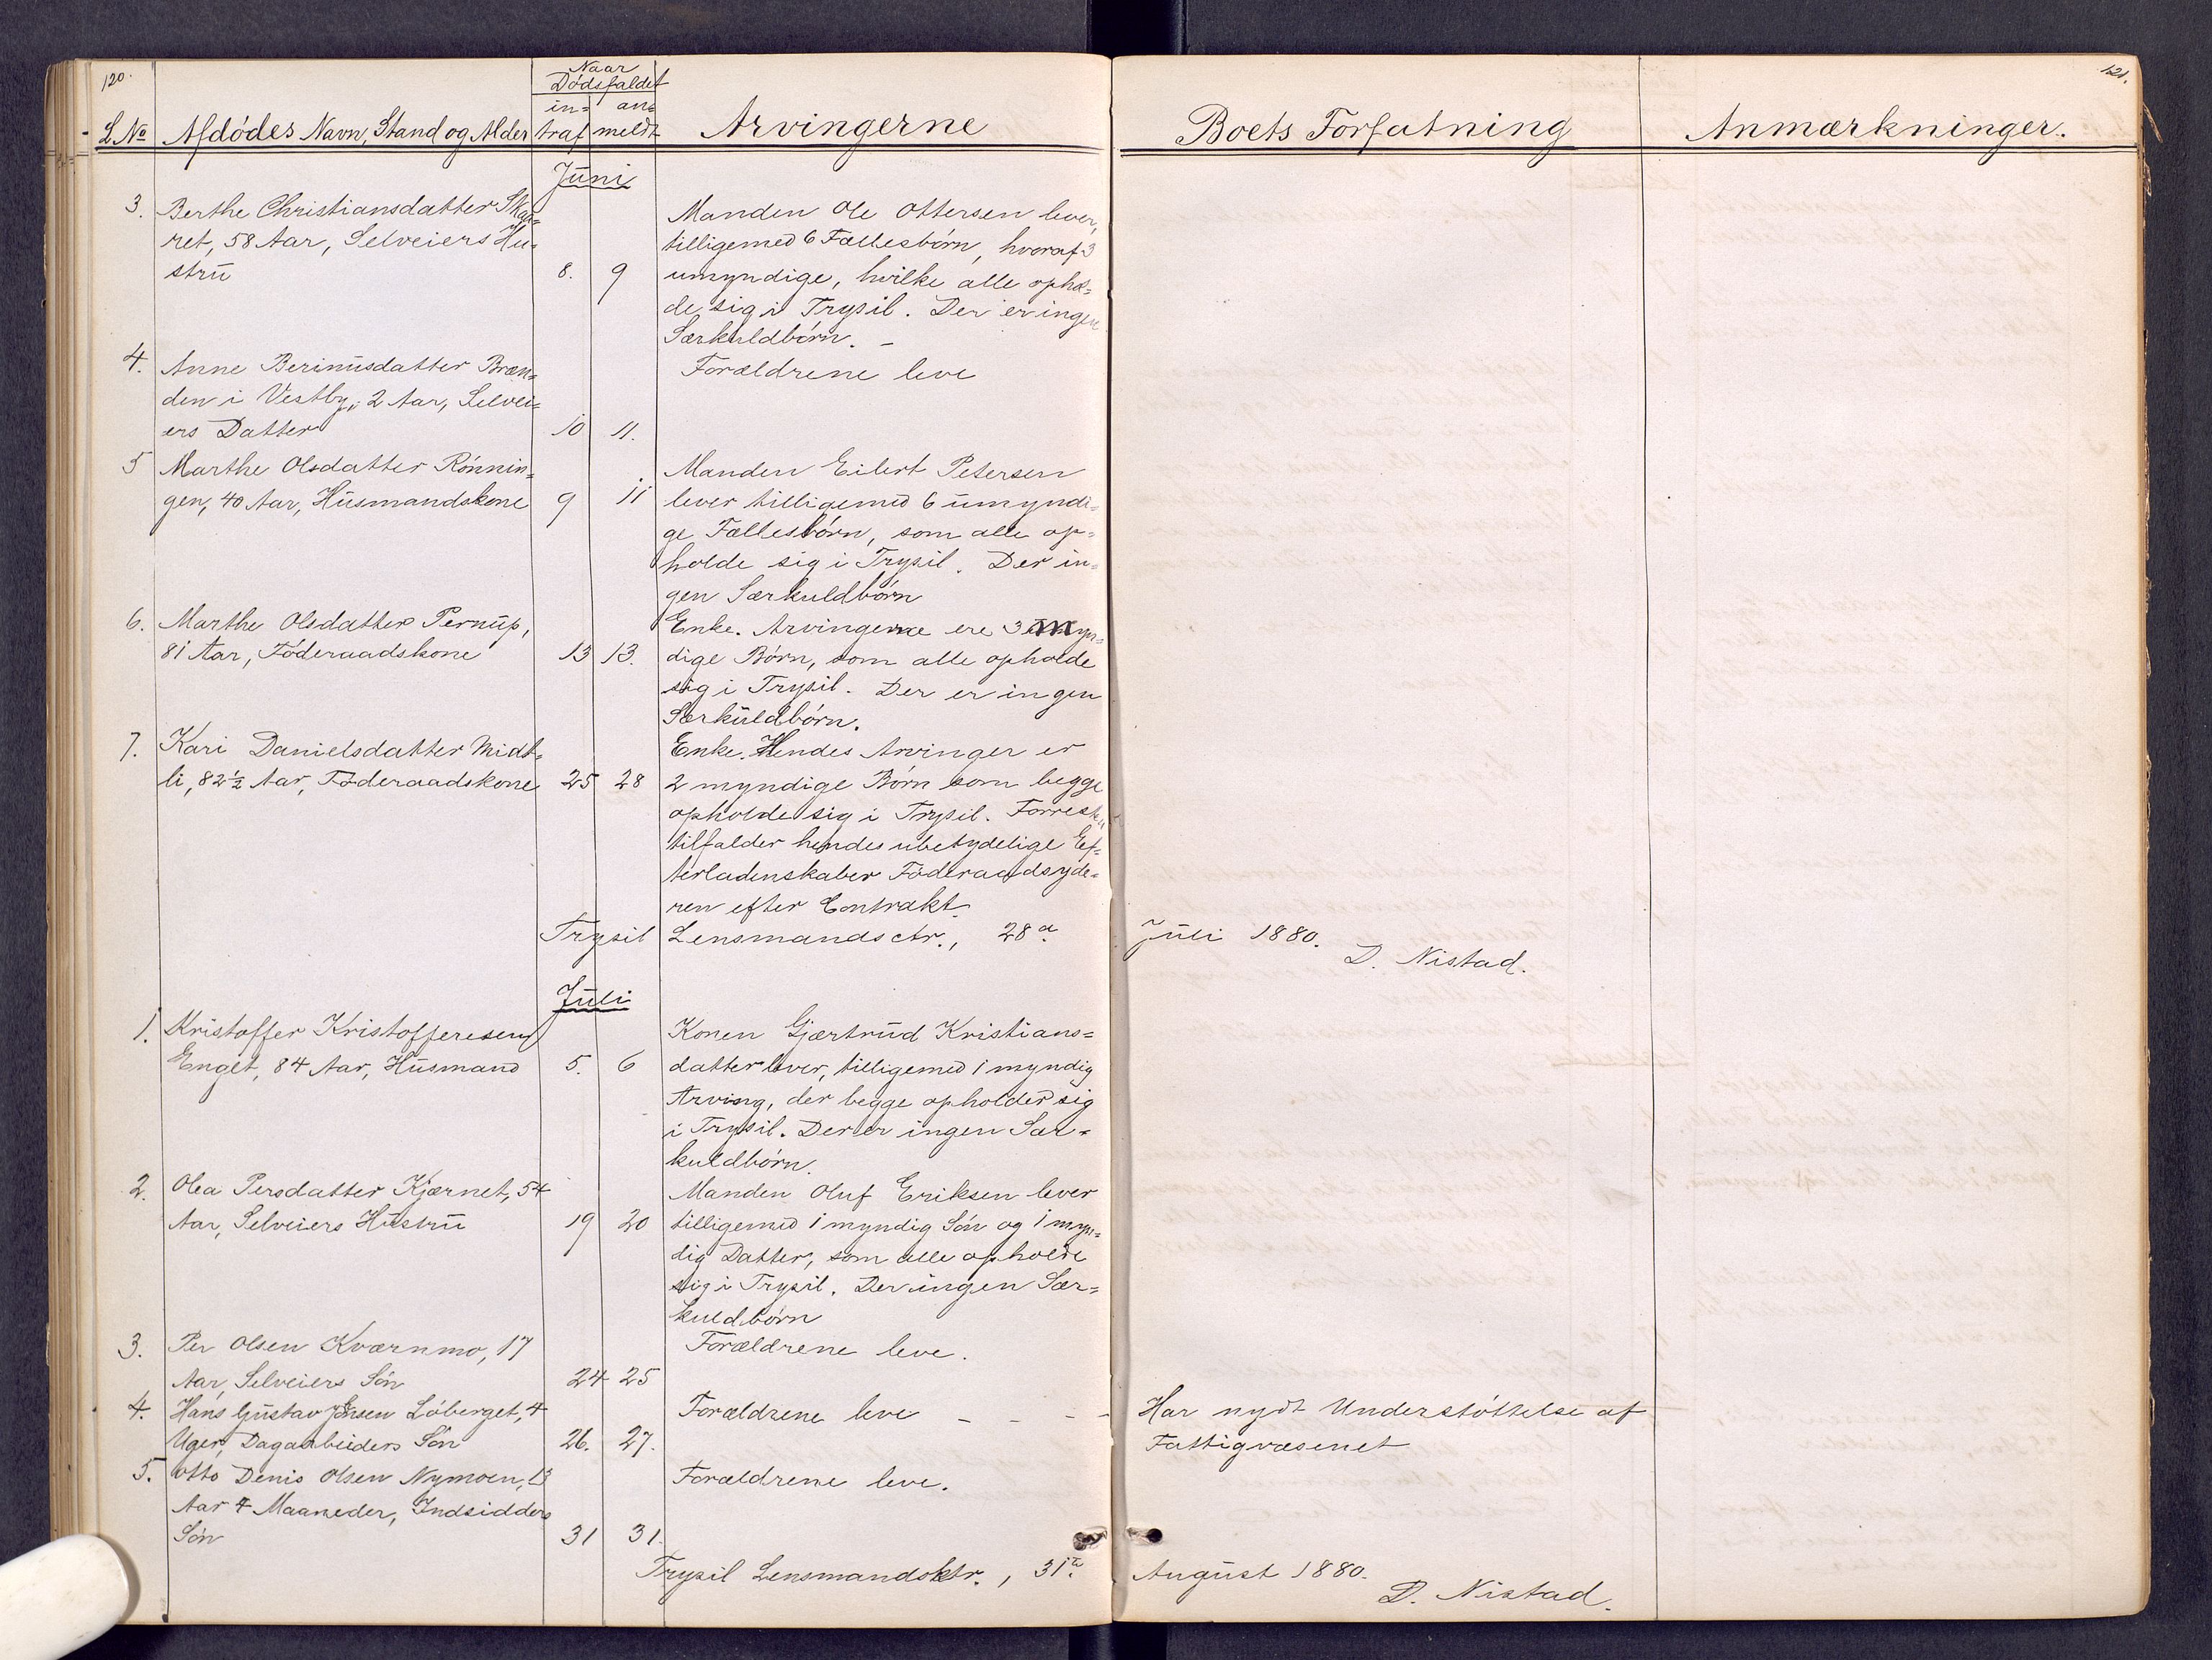 120.
Naar
Dödsfaldet
in= an=
L.No Afdödes Navn, Stand og Alder traf meldt Arvingerne
Juni
3. Berthe Christiansdatter Skar=
ret, 58 Aar, Selveiers Hu=
stru 8. 9
Manden Ole Ottersen lever,
tilligemed 6 Fællesbörn, hvoraf 3
umyndige, hvilke alle ophol=
de sig i Trysil. Der er ingen
Særkuldbörn. -
4. Anne Berinusdatter Bræn=
den i Vestby, 2 Aar, Selvei=
ers Datter 10 11.
Forældrene leve
5 Marthe Olsdatter Rönnin=
gen, 40 Aar, Husmandskone 9 11
Manden Eilert Petersen
lever tilligemed 6 umyndi=
ge Fællesbörn, som alle op=
holde sig i Trysil. Der in=
gen Særkuldbörn
6. Marthe Olsdatter Pernup,
81 Aar, Föderaadskone 13 13.
Enke. Arvingerne ere 3 myn=
dige Börn, som alle opholde
sig i Trysil. Der er ingen
Særkuldbörn.
7. Kari Danielsdatter Midt=
li, 82½ Aar, Föderaadskone 25 28
Enke. Hendes Arvinger er
2 myndige Börn som begge
opholde sig i Trysil. Forresten
tilfalder hendes ubetydelige Ef=
terladenskaber Föderaadsyde=
ren efter Contrakt.
Trysil Lensmandsctr., 28d
Juli
1. Kristoffer Kristofferesen
Enget, 84 Aar, Husmand 5. 6
Konen Gjærtrud Kristians=
datter lever, tilligemed 1 myndig
Arving, der begge opholder sig
i Trysil. Der er ingen Sær=
kuldbörn.
2. Olea Persdatter Kjærnet, 54
Aar, Selveiers Hustru 19 20
Manden Oluf Eriksen lever
tilligemed 1 myndig Sön og 1 myn=
dig Datter, som alle opholde
sig i Trysil. Der ingen Sær=
kuldbörn
3. Per Olsen Kværnmo, 17
Aar, Selveiers Sön 24 25
Forældrene leve.
4. Hans Gustav Jensen Löberget, 4
Uger, Dagarbeiders Sön 26. 27.
Forældrene leve - - - -
5. Otto Denis Olsen Nymoen, 13
Aar 4 Maaneder, Indsidders
Sön 31 31.
Forældrene leve.
Trysil Lensmandsktr., 31te
121.
Boets Forfatning Anmærkninger.
Juli 1880.
D. Nistad.
Har nydt Understöttelse af
Fattigvæsenet
August 1880.
D. Nistad.